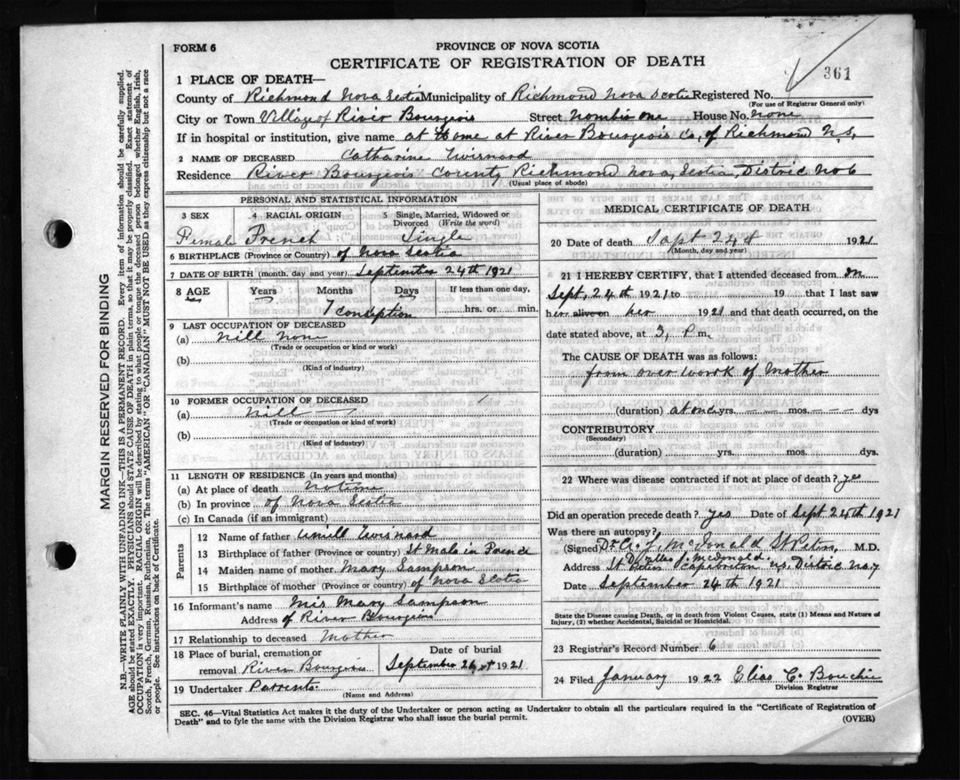 FORM 6
PROVINCE OF NOVA SCOTIA
CERTIFICATE OF REGISTRATION OF DEATH
361
1 PLACE OF DEATH—
County of Richmond Nova Scotia Municipality of Richmond Nova Scotia Registered No.
(For use of Registrar General only)
City or Town Village of River Bourgeois Street nombre one House No. none
If in hospital or institution, give name at Home at River Bourgeois Co, of Richmond N.S,
2 NAME OF DECEASED Catharine
Residence River Bourgeois County Richmond Nova Scotia, Distric No 6
(Usual place of abode)
PERSONAL AND STATISTICAL INFORMATION
3 SEX 4 RACIAL ORIGIN 5 Single, Married, Widowed or Divorced (Write the word)
Femal French Single
6 BIRTHPLACE (Province or Country) of Nova Scotia
7 DATE OF BIRTH (month, day and year) September 24th 1921
8 AGE Years Months Days If less than one day,
7 conseption hrs. or min.
9 LAST OCCUPATION OF DECEASED
(a) Nill Non
(Trade or occupation or kind or work)
(b)
(Kind of industry)
10 FORMER OCCUPATION OF DECEASED
(a) Nill
(Trade or occupation or kind of work)
(b)
(Kind of industry)
11 LENGTH OF RESIDENCE (In years and months)
(a) At place of death no time
(b) In province of Nova Scotia
(c) In Canada (if an immigrant)
Parents
12 Name of father
13 Birthplace of father (Province or country) St Malo in France
14 Maiden name of mother Mary Sampson
15 Birthplace of mother (Province or country) of Nova Scotia
16 Informant's name Mis Mary Sampson
Address of River Bourgeois
17 Relationship to deceased Mother
18 Place of burial, cremation or removal River Bourgeois Date of burial September 26 1921
19 Undertaker Parrents
(Name and Address)
MEDICAL CERTIFICATE OF DEATH
20 Date of death Sapt 24th 1921
(Month, day and year)
21 I HEREBY CERTIFY, that I attended deceased from on
Sept, 24th 1921 to 19 that I last saw
her alive on her 1921 and that death occurred, on the
date stated above, at 3, P. m.
The CAUSE OF DEATH was as follows:
from over work of Mother
(duration) at once yrs. mos. dys
CONTRIBUTORY
(Secondary)
(duration) yrs. mos. dys
22 Where was disease contracted if not at place of death? yes
Did an operation precede death? yes Date of Sept 24th 1921
Was there an autopsy?
(Signed) McDonald St Peters, M.D.
Address St Peters Capebriton N.S. Distric No, 7
Date September 24th 1921
State the Disease causing Death, or in death from Violent Causes, state (1) Means and Nature of Injury, (2) whether Accidental, Suicidal or Homicidal.
23 Registrar's Record Number 6
24 Filed January 1922 Elias C. Bouchie
Division Registrar
SEC. 46—Vital Statistics Act makes it the duty of the Undertaker or person acting as Undertaker to obtain all the particulars required in the "Certificate of Registration of
Death" and to fyle the same with the Division Registrar who shall issue the burial permit.
(OVER)
MARGIN RESERVED FOR BINDING
N.B.—WRITE PLAINLY WITH UNFADING INK—THIS IS A PERMANENT RECORD. Every item of information should be carefully supplied.
AGE should be stated EXACTLY. PHYSICIANS should STATE CAUSE OF DEATH in plain terms, so that it may be properly classified. Exact statement of
OCCUPATION is very important. RACIAL ORIGIN will be described by stating to what people or tongue the deceased person belonged whether English, Irish,
Scotch, French, German, Russian, Ruthenian, etc. The terms "AMERICAN" OR "CANADIAN" MUST NOT BE USED as they express citizenship but not a race
or people. See instructions on back of Certificate.